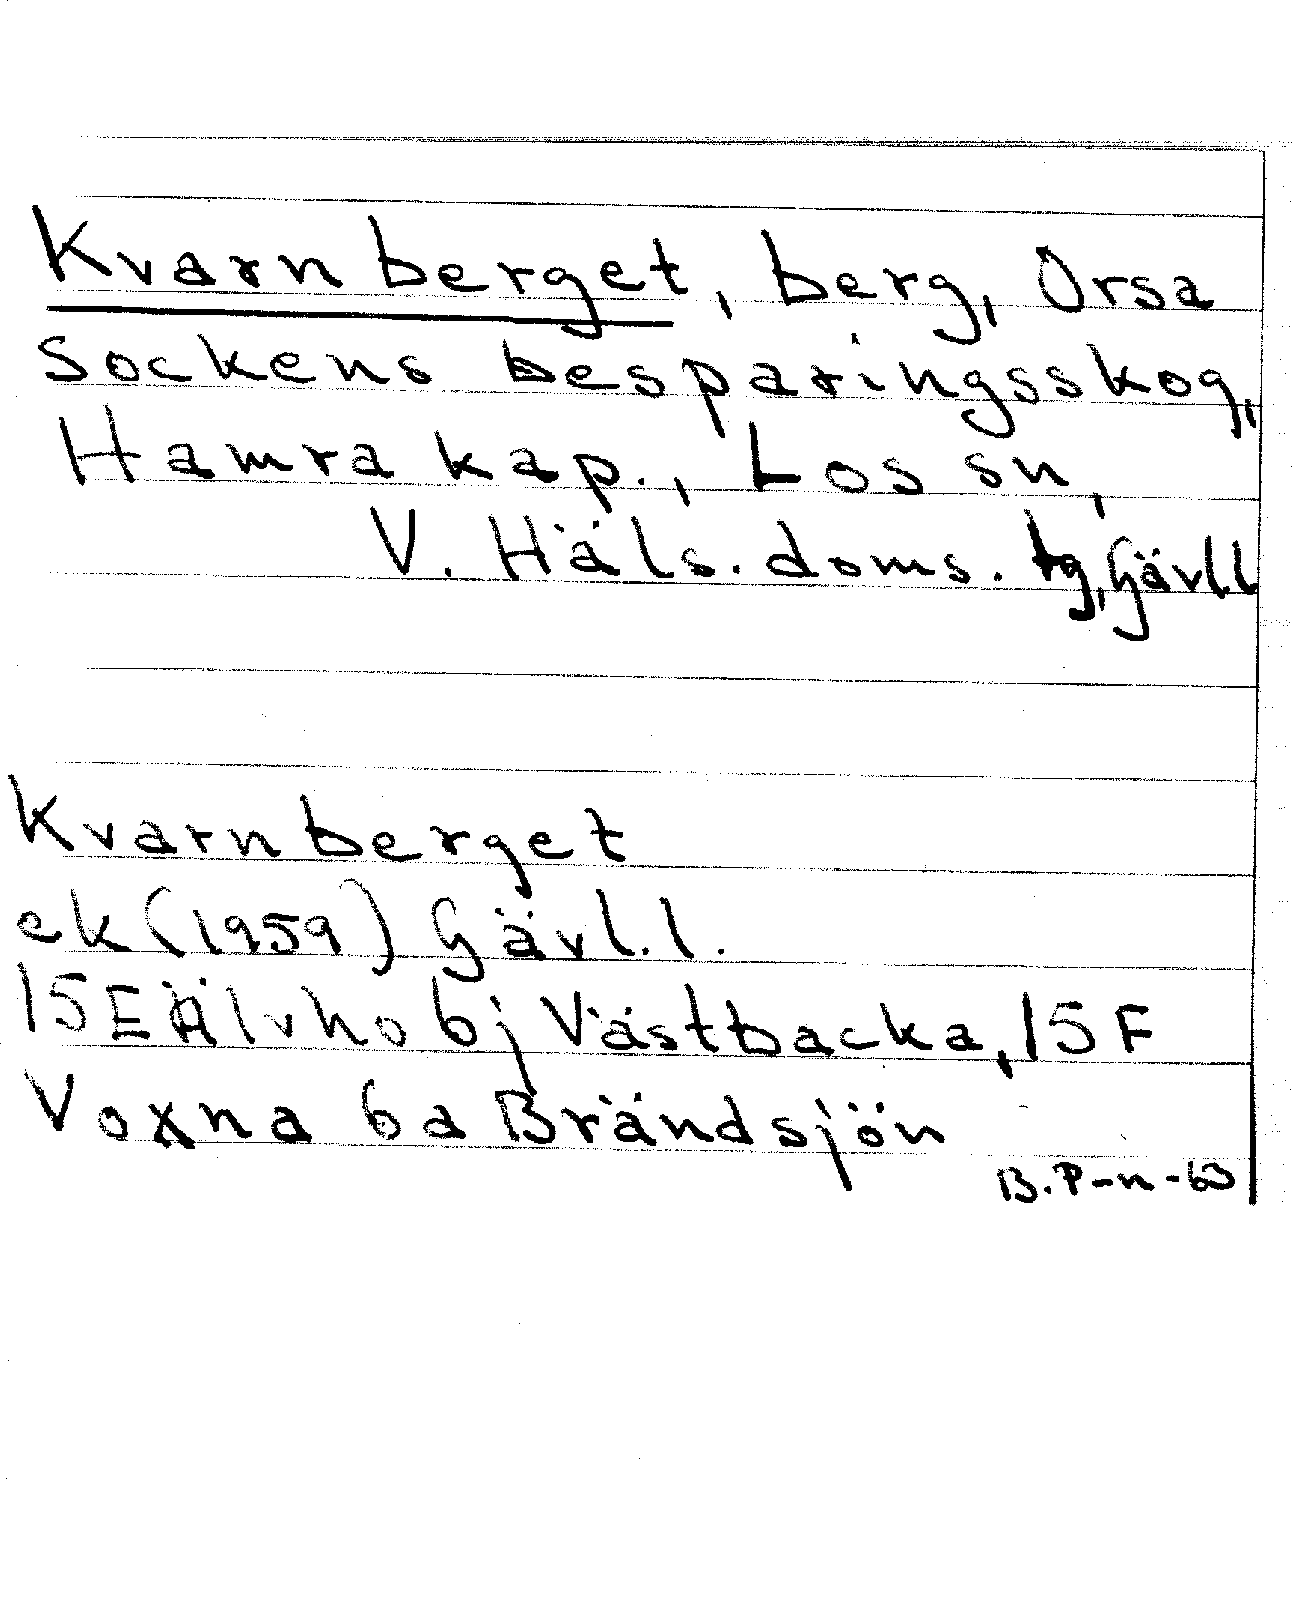 Kvarnberget, berg, Orsa
Sockens besparingsskog,
Hamra kap., Los sn,
V. Häls. doms. tg, Gävl.l
Kvarnberget
ek (1959) Gävl.l.
15E Älvho 6j Västbacka, 15F
Voxna 6a Brändsjön
B.P-n-60